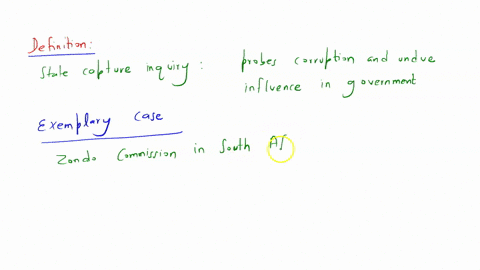 Definition:
State capture inquiry : probes corruption and undue
influence in government
Exemplary case
Zondo Commission in South Af